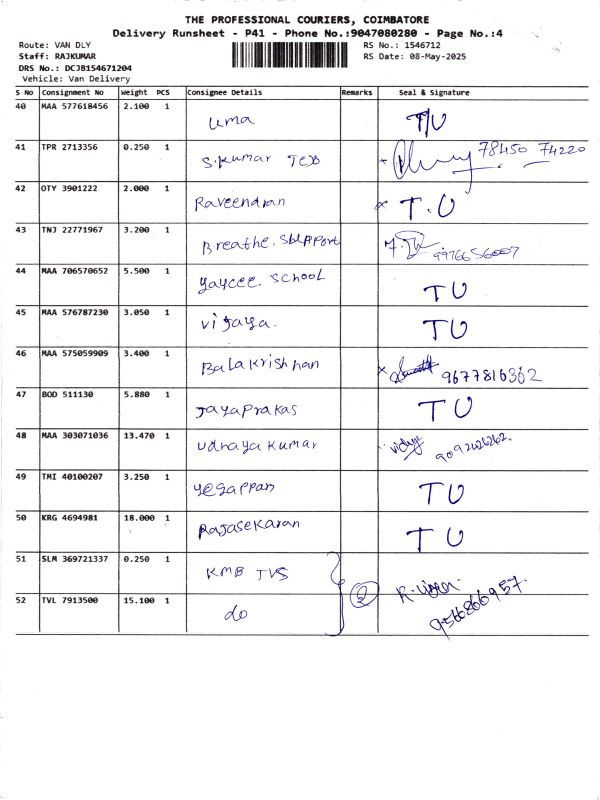 THE PROFESSIONAL COURIERS, COIMBATORE
Delivery Runsheet - P41 - Phone No.:9047080280 - Page No.:4
Route: VAN DLY RS No.: 1546712
Staff: RAJKUMAR RS Date: 08-May-2025
DRS No.: DCJB154671204
Vehicle: Van Delivery
S No Consignment No Weight PCS Consignee Details Remarks Seal & Signature
40 MAA 577618456 2.100 1 uma T/U
41 TPR 2713356 0.250 1 S.kumar Tex 78450 74220
42 OTY 3901222 2.000 1 Raveendran T.U
43 TNJ 22771967 3.200 1 Breathe. Support 9976656007
44 MAA 706570652 5.500 1 Jaycee. School TU
45 MAA 576787230 3.050 1 vijaya. TU
46 MAA 575059909 3.400 1 Balakrishnan 9677816362
47 BOD 511130 5.880 1 Jayaprakas TU
48 MAA 303071036 13.470 1 udhaya kumar
49 TMI 40100207 3.250 1 yegappan TU
50 KRG 4694981 18.000 1 Rajasekaran TU
51 SLM 369721337 0.250 1 KMB TVS
52 TVL 7913500 15.100 1 do 2 9566866957